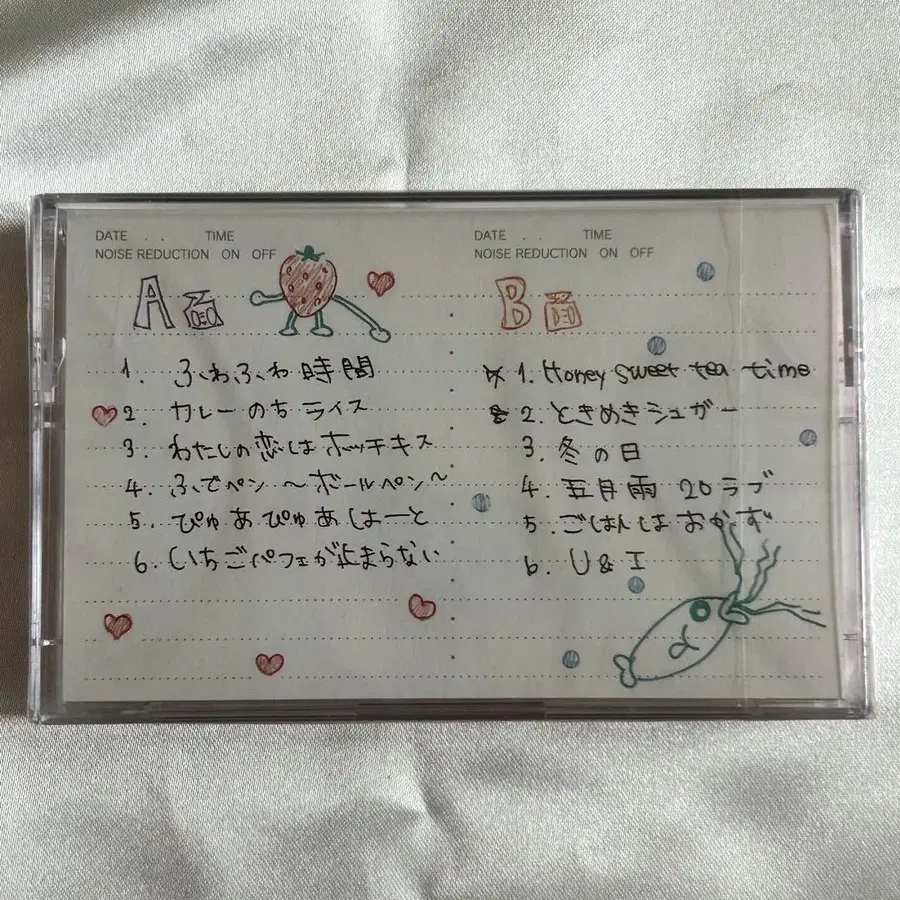 DATE . . TIME
NOISE REDUCTION ON OFF
A面
1. ふわふわ時間
2. カレーのちライス
3. わたしの恋はホッチキス
4. ふでペン 〜ボールペン〜
5. ぴゅあぴゅあはーと
6. いちごパフェが止まらない
DATE . . TIME
NOISE REDUCTION ON OFF
B面
1. Honey sweet tea time
2. ときめきシュガー
3. 冬の日
4. 五月雨 20 ラブ
5. ごはんはおかず
6. U&I